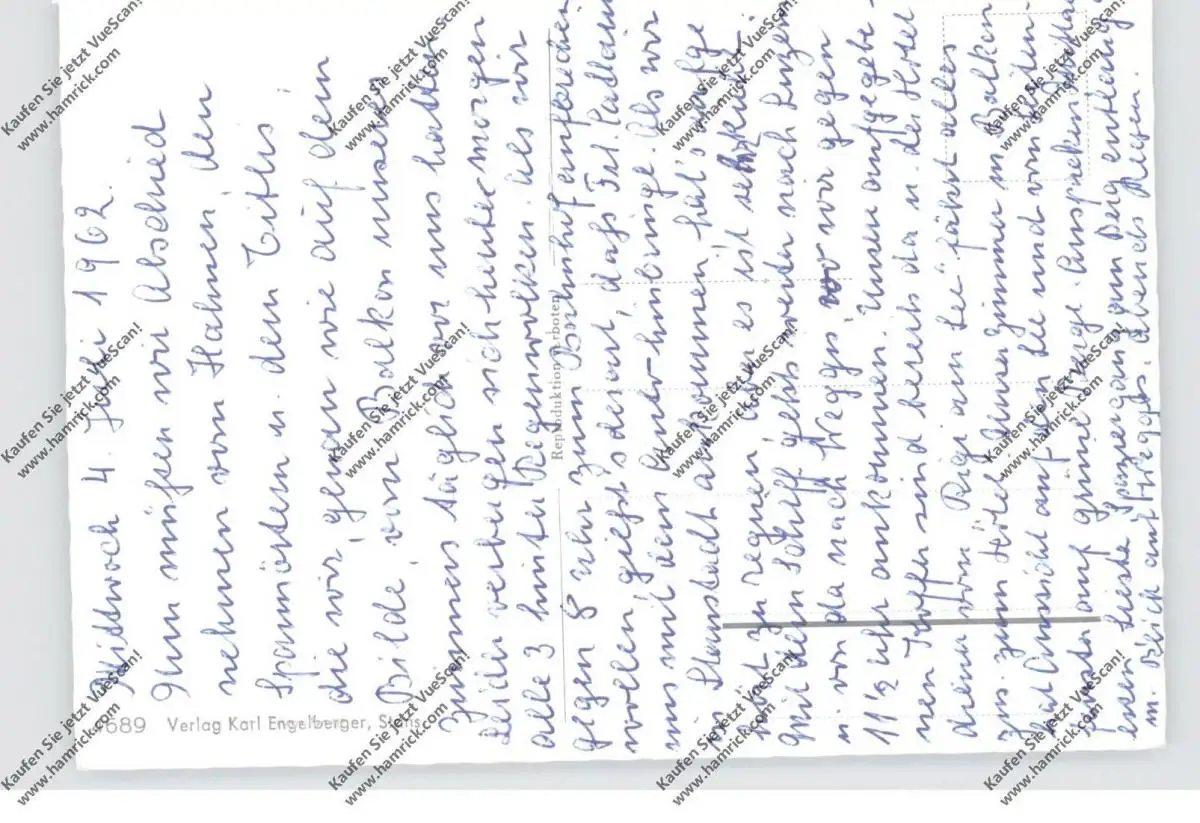 Mittwoch 4. Juli 1962.
Nun müssen wir Abschied
nehmen vom Hahnen, den
Spannörtern u. dem Titlis,
die wir, genau wie auf dem
Bilde, vom Balkon unseres
Zimmers täglich vor uns hatten
leider verbergen sich heute morgen
alle 3 hinter Regenwolken. Als wir
gegen 8 Uhr zum Bahnhof aufbrechen
wollen giesst derart, dass Frl.
uns mit dem hinbringe. Als wir
in Stansstadt ankommen, hat's aufge
hört zu regnen aber es ist sehr kühl.
Mit dem Schiff geht's weiter nach Luzern
u. von da nach Weggis, wo wir gegen
11½ Uhr ankommen. Unser aufgege-
nen Koffer sind bereits da u. des Hotel
diener vom Rigi am See fährt alles
zum Hotel. Unser Zimmer m. Balkon
hat Aussicht auf den See und vom
Fenster auf grüne Berge. Auspacken,
erster Spaziergang am Berg entlang
m. Blick auf Weggis. Abends Regen.
4689 Verlag Karl Engelberger, Stans
Reproduktion verboten
Kaufen Sie jetzt VueScan!
www.hamrick.com